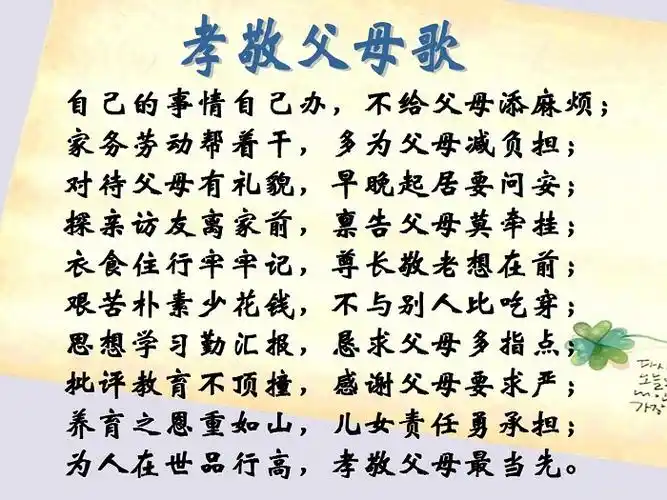 孝敬父母歌
自己的事情自己办，不给父母添麻烦；
家务劳动帮着干，多为父母减负担；
对待父母有礼貌，早晚起居要问安；
探亲访友离家前，禀告父母莫牵挂；
衣食住行牢牢记，尊长敬老想在前；
艰苦朴素少花钱，不与别人比吃穿；
思想学习勤汇报，恳求父母多指点；
批评教育不顶撞，感谢父母要求严；
养育之恩重如山，儿女责任勇承担；
为人在世品行高，孝敬父母最当先。